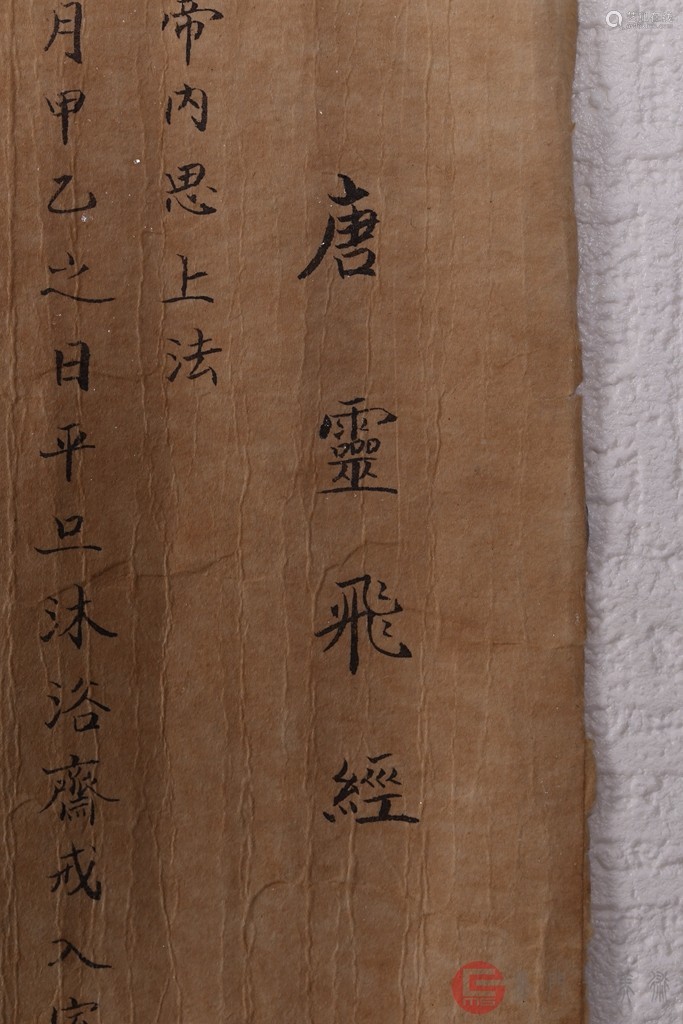 唐靈飛經
帝内思上法
月甲乙之日平旦沐浴齋戒入室